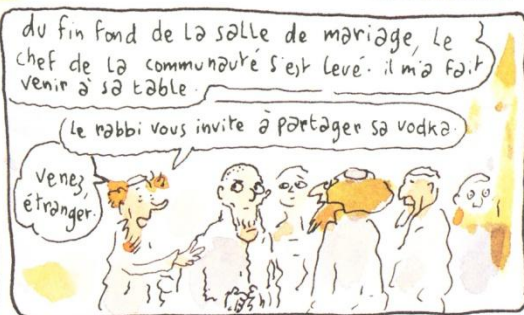 du fin fond de la salle de mariage, le
chef de la communauté s'est levé. il m'a fait
venir à sa table.
Le rabbi vous invite à partager sa vodka.
venez,
étranger.